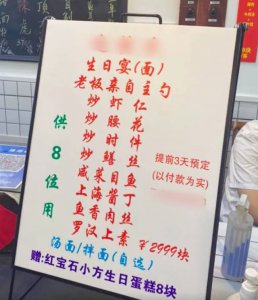 生日宴(面)
老板亲自主勺
炒虾仁
炒腰花
炒时件
炒鳝丝
咸菜目鱼
上海酱丁
鱼香肉丝
罗汉上素 ¥2999块
汤面/拌面(自选)
赠:红宝石小方生日蛋糕8块
供8位用
提前3天预定
(以付款为实)